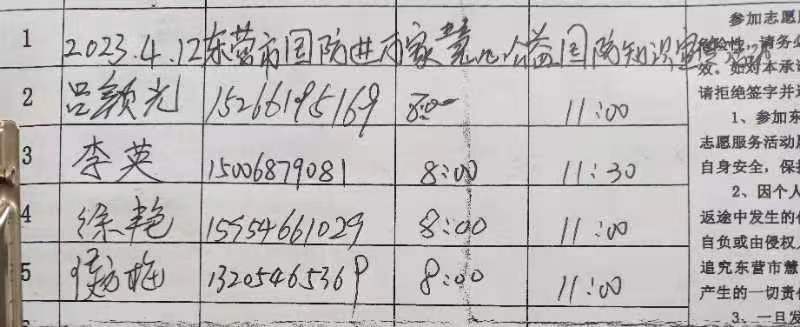 1 2023.4.12东营市国防进万家 公益国防知识宣
2 吕颜光 15266195169 8:00 11:00
3 李英 15006879081 8:00 11:30
4 徐艳 15954661029 8:00 11:00
5 梅 13205465369 8:00 11:00
参加志愿
险性，请务必
效。如对本承诺
请拒绝签字并退
1、参加东
志愿服务活动
自身安全，保
2、因个人
返途中发生的
自负或由侵权人
追究东营市麓
产生的一切责任
3、一旦发